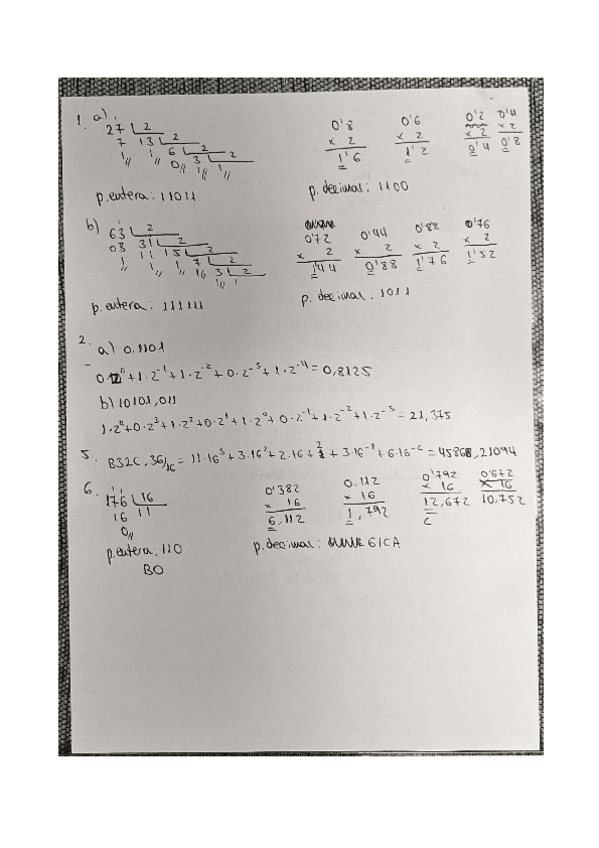 1. a)
27 | 2
7 13 | 2
1// 1 6 | 2
0// 3 | 2
1// 1//
0'8 x 2 = 1'6
0'6 x 2 = 1'2
0'2 x 2 = 0'4
0'4 x 2 = 0'8
p.entera: 11011
p. decimal: 1100
b)
63 | 2
03 31 | 2
1// 11 15 | 2
1// 7 | 2
1// 3 | 2
1// 1
0'72 x 2 = 1'44
0'44 x 2 = 0'88
0'88 x 2 = 1'76
0'76 x 2 = 1'52
p. entera: 111111
p. decimal: 1011
2.
a) 0,1101
0·2⁰+1·2⁻¹+1·2⁻²+0·2⁻³+1·2⁻⁴=0,8125
b) 10101,011
1·2⁴+0·2³+1·2²+0·2¹+1·2⁰+0·2⁻¹+1·2⁻²+1·2⁻³=21,375
5. B32C,36/₁₆=11·16³+3·16²+2·16+ +3·16⁻¹+6·16⁻²=45868,21094
6.
176 | 16
16 11
0//
0'382 x 16 = 6,112
0,112 x 16 = 1,792
0'792 x 16 = 12,672
C
0'672 x 16 = 10,752
p.entera, 110
B0
p.decimal: 61CA